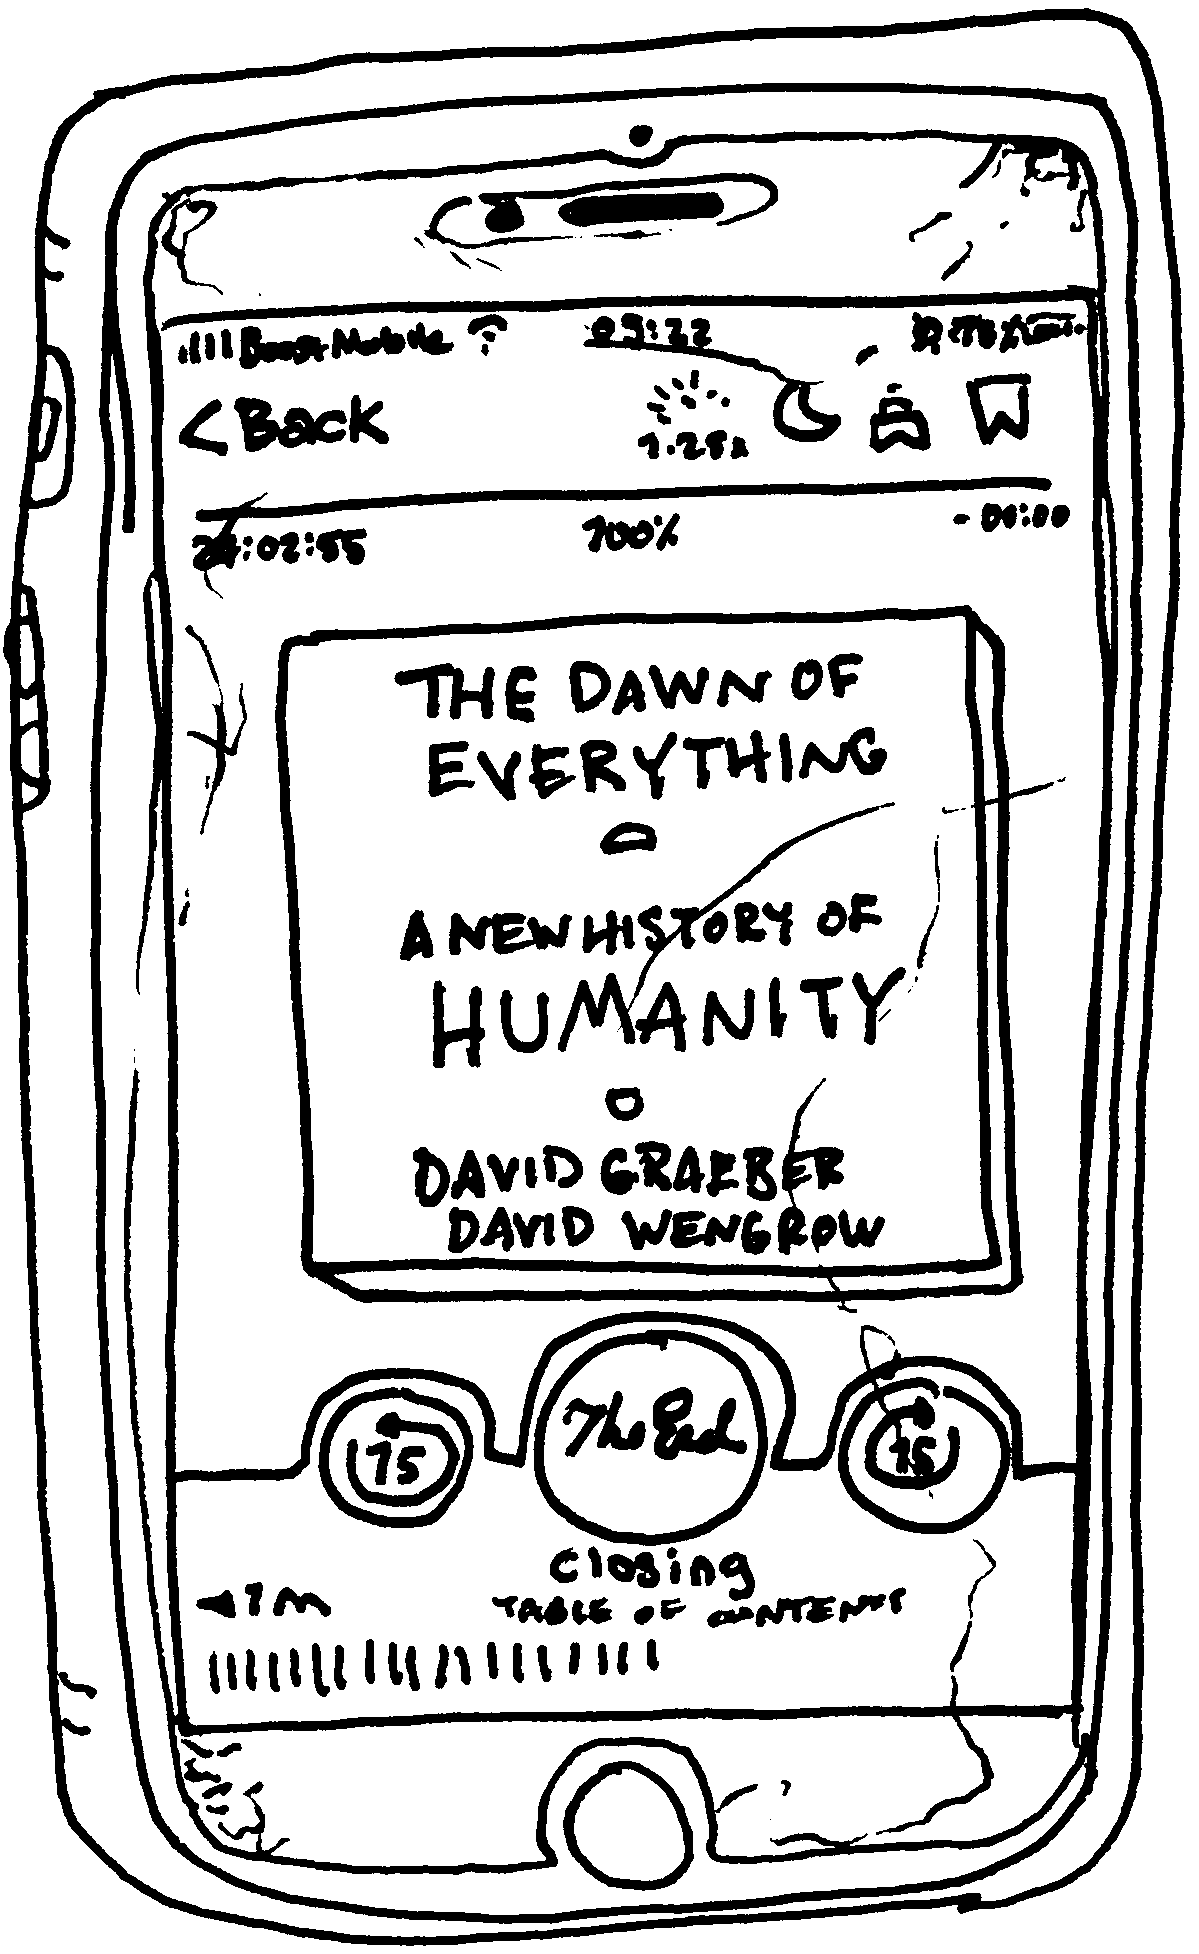 Boost Mobile 09:22
< Back
1.25x
24:02:55 100% - 00:00
THE DAWN OF
EVERYTHING
A NEW HISTORY OF
HUMANITY
DAVID GRAEBER
DAVID WENGROW
15 The End 15
Closing
1m TABLE OF CONTENTS